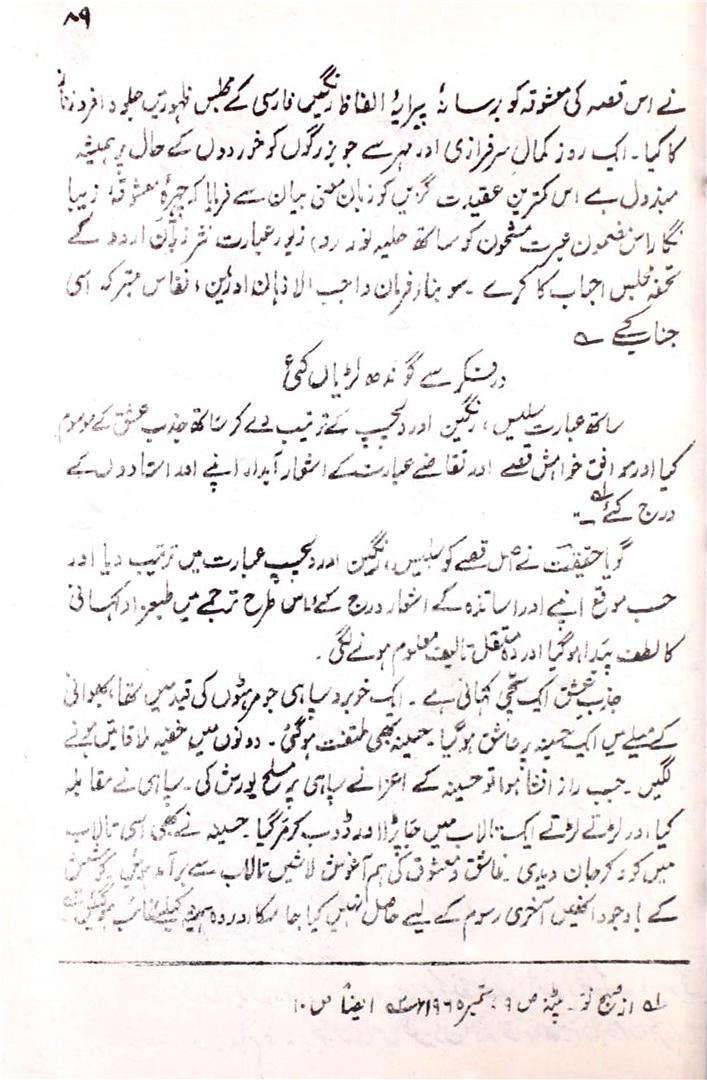 ۸۹
نے اس قصہ کی معشوقہ کو برسانہٗ پیرایۂ الفاظ رنگیں فارسی کے مجلس ظہور میں جلوہ افروز
کا کیا ۔ ایک روز کمال سرفرازی اور مہر سے جو بزرگوں کو خوردوں کے حال پر ہمیشہ
مبذول ہے اس کمترین عقیدت گزیں کو زبان معنی بیان سے فرمایا کہ چہرۂ معشوقۂ زیبا
نگار اس مضمون عبرت مشحون کو ساتھ حلیہ نو درو، زیور عبارت نثر زبان اردو کے
تحفۂ مجلس احباب کا کرے ۔ سو بنا بر فرمان واجب الاذہان اور انفاس متبرکہ اسی
جناب کے ؎
در فکر سے گوندھ لڑیاں کئی
ساتھ عبارت سلیس، رنگین اور دلچسپ کے ترتیب دے کر ساتھ جذب عشق کے موسوم
کیا اور موافق خواہش قصے اور تقاضے عبارت کے اشعار آبدار اپنے اور استادوں کے
درج کئے ۱؎ ۔"
گویا حقیقت نے اصل قصے کو سلیس، رنگین اور دلچسپ عبارت میں ترتیب دیا اور
حسب موقع اپنے اور اساتذہ کے اشعار درج کئے، اس طرح ترجمے میں طبعزاد کہانی
کا لطف پیدا ہو گیا اور وہ مستقل تالیف معلوم ہونے لگی ۔
جذب عشق ایک سچی کہانی ہے ۔ ایک خوبرو سپاہی جو مرہٹوں کی قید میں تھا، بھوانی
کے میلے میں ایک حسینہ پر عاشق ہو گیا ۔ حسینہ بھی ملتفت ہو گئی ۔ دونوں میں خفیہ ملاقاتیں ہونے
لگیں ۔ جب راز افشا ہوا تو حسینہ کے اعزا نے سپاہی پر مسلح یورش کی ۔ سپاہی نے مقابلہ
کیا اور لڑتے لڑتے ایک تالاب میں جا پڑا اور ڈوب کر مر گیا ۔ حسینہ نے بھی اسی تالاب
میں کود کر جان دیدی ۔ عاشق و معشوق کی ہم آغوش لاشیں تالاب سے برآمد ہوئیں ۔ کوشش
کے باوجود انھیں آخری رسوم کے لیے حاصل نہیں کیا جا سکا اور وہ ہمیشہ کیلئے غائب ہو گئیں ۲؎
۱؎ از صبح نو ۔ پٹنہ ص ۹ ، ستمبر ۱۹۶۵ء ۲؎ ایضاً ص ۱۰